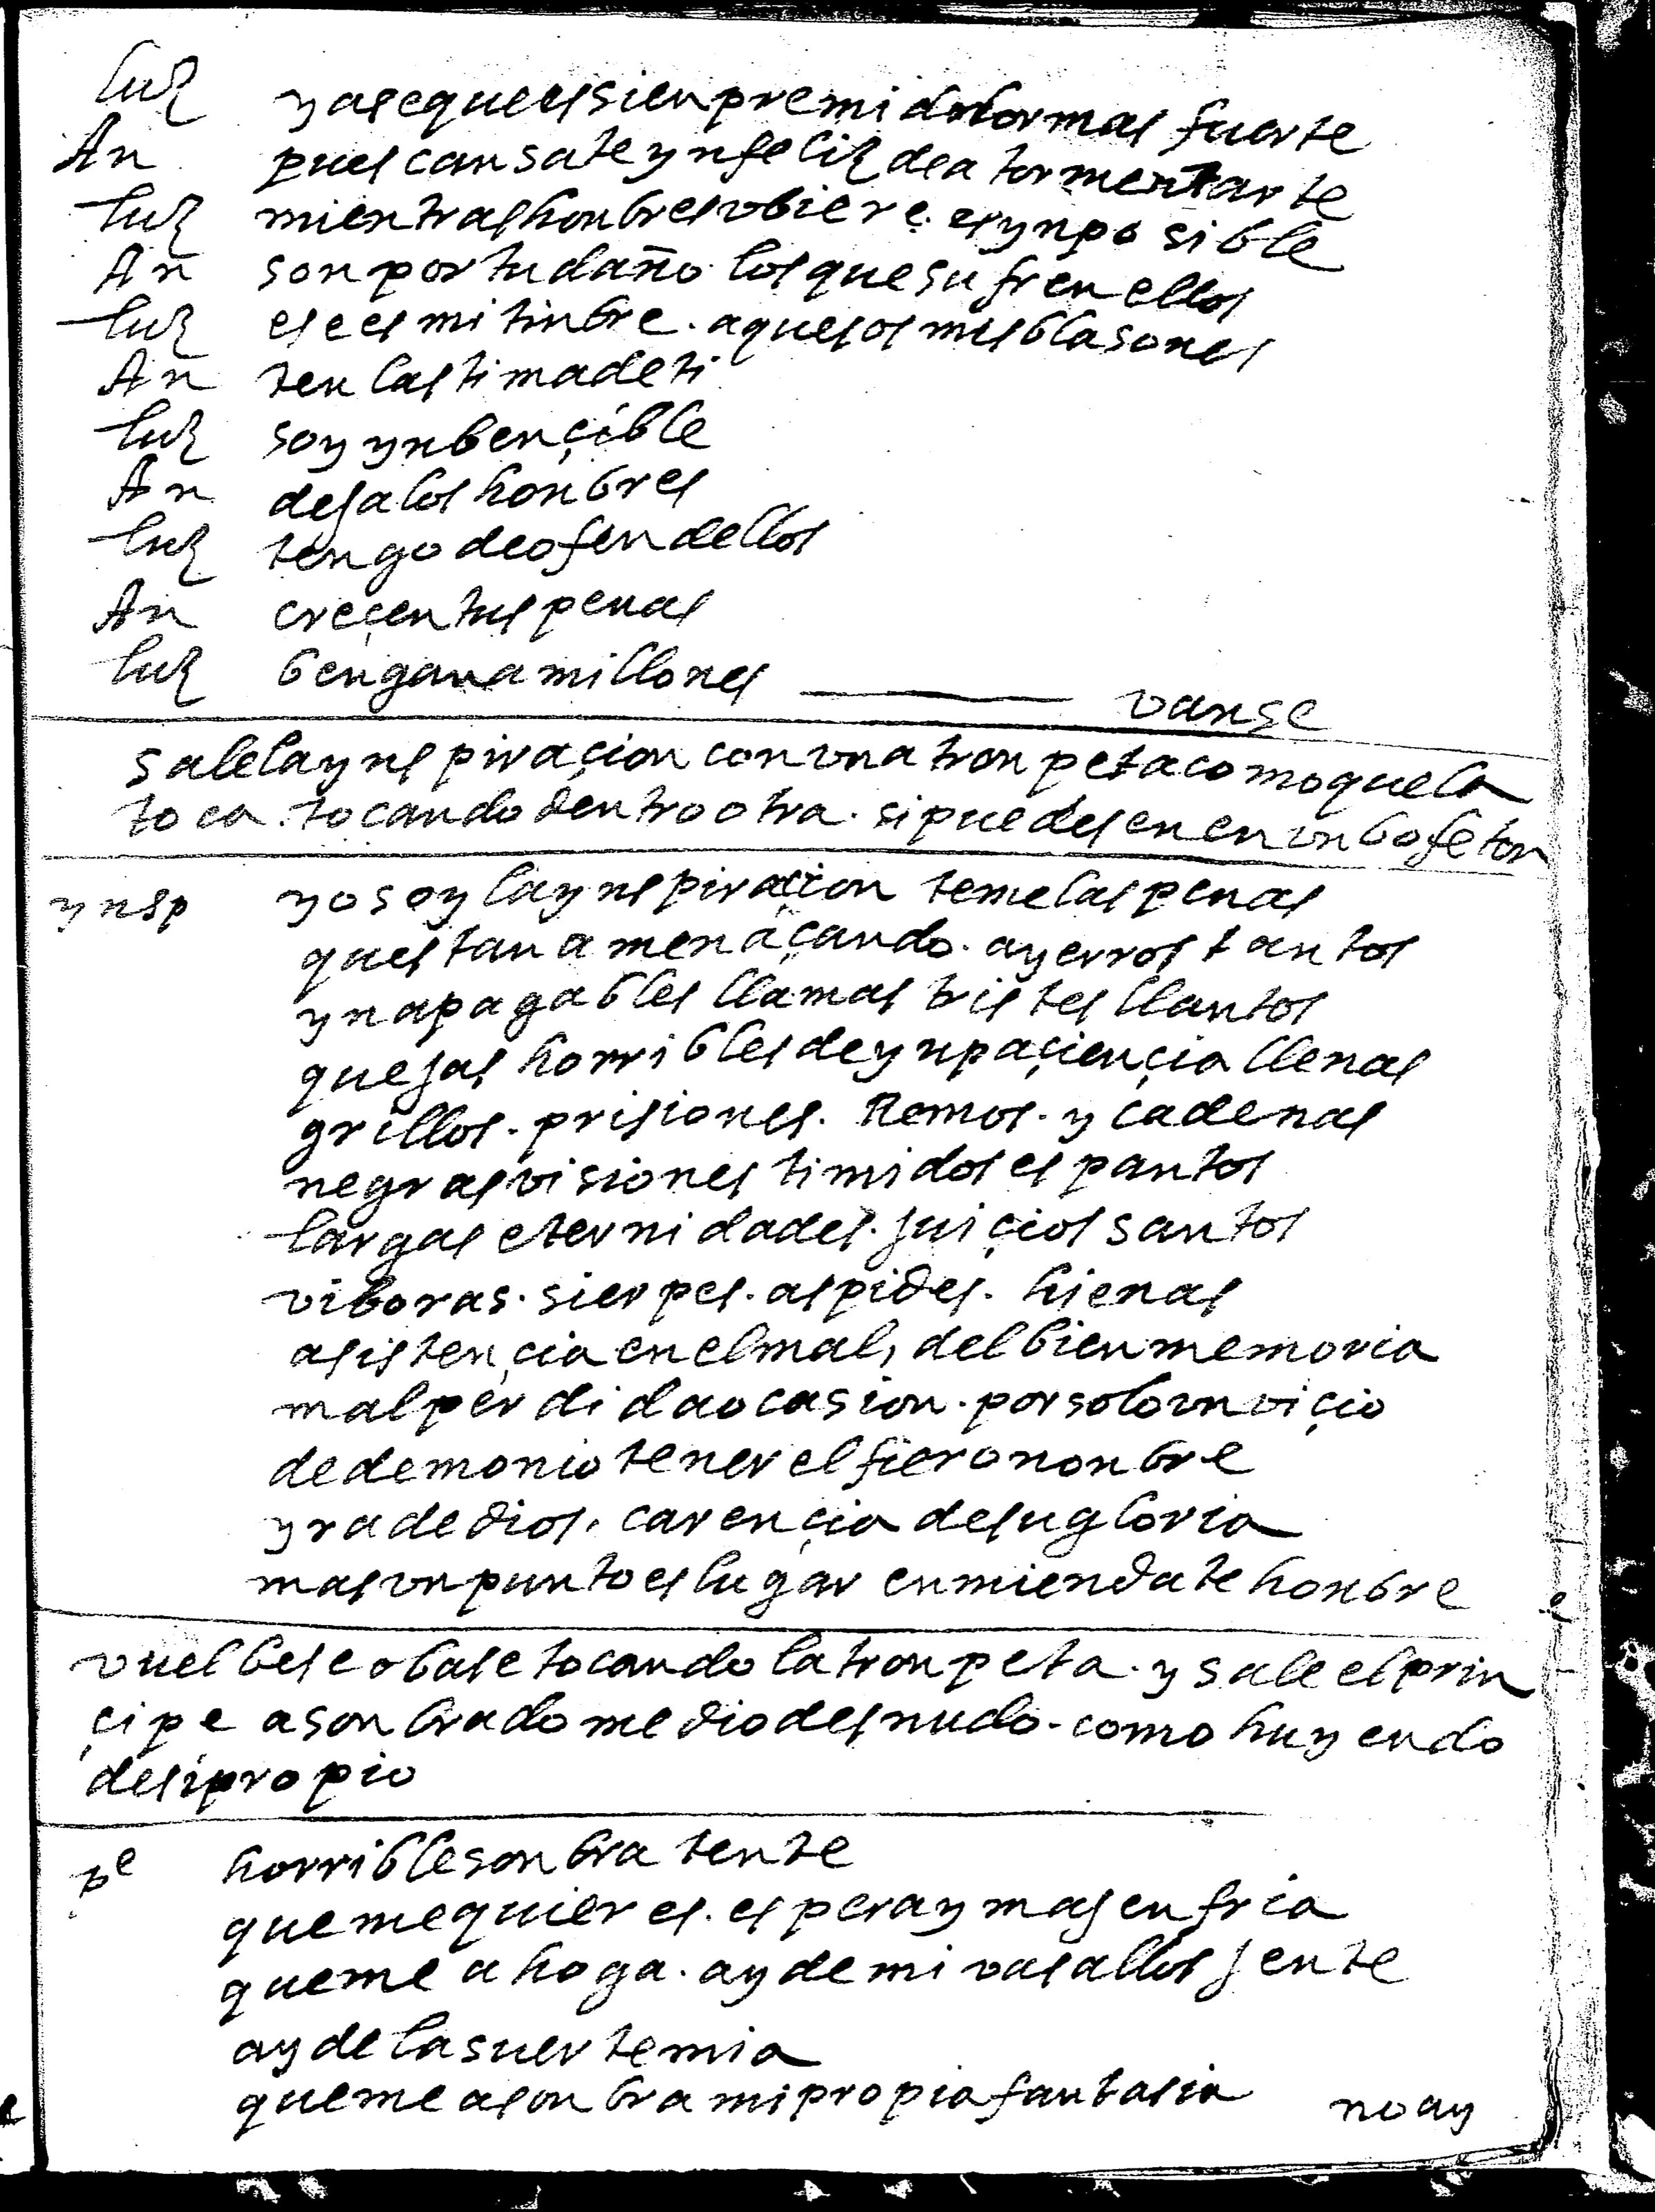 luz yaseque es sienpre mi dolor mas fuerte
An pues cansate ynfeliz de atormentarte
luz mientras honbres vbiere. es ynposible
An son por tu daño. los que sufren ellos
luz ese es mi tinbre. aquesos mis blasones
An ten lastima de ti
luz soy ynbençible
An deja los honbres
luz tengo de ofendellos
An creçen tus penas
luz bengan a millones vanse
sale la ynspiraçion con vna tronpeta como que la
toca. tocando dentro otra. si puede ser en vn bofeton
ynsp yo soy la ynspiraçion teme las penas
questan amenaçando. a yerros tantos
ynapagables llamas tristes llantos
quejas horribles de ynpaçiençia llenas
grillos. prisiones. Remos. y cadenas
negras visiones timidos espantos
largas eternidades. juiçios santos
viboras. sierpes. aspides. hienas
asistençia en el mal, del bien memoria
mal perdida ocasion. por solo vn viçio
de demonio tener el fiero nonbre
yra de dios. carençia de su gloria
mas vn punto es lugar enmiendate honbre
vuelbese o base tocando la tronpeta. y sale el prin
çipe asonbrado medio desnudo. como huyendo
de si propio
pe horrible sonbra tente
que me quieres. espera ymajen fria
que me ahoga. ay de mi vasallos jente
ay de la suerte mia
que me asonbra mi propia fantasia
no ay